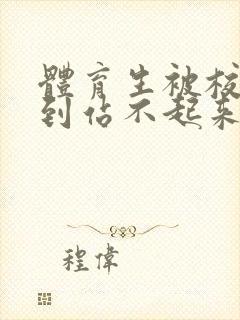 體育生被校
到佔不起来
程偉